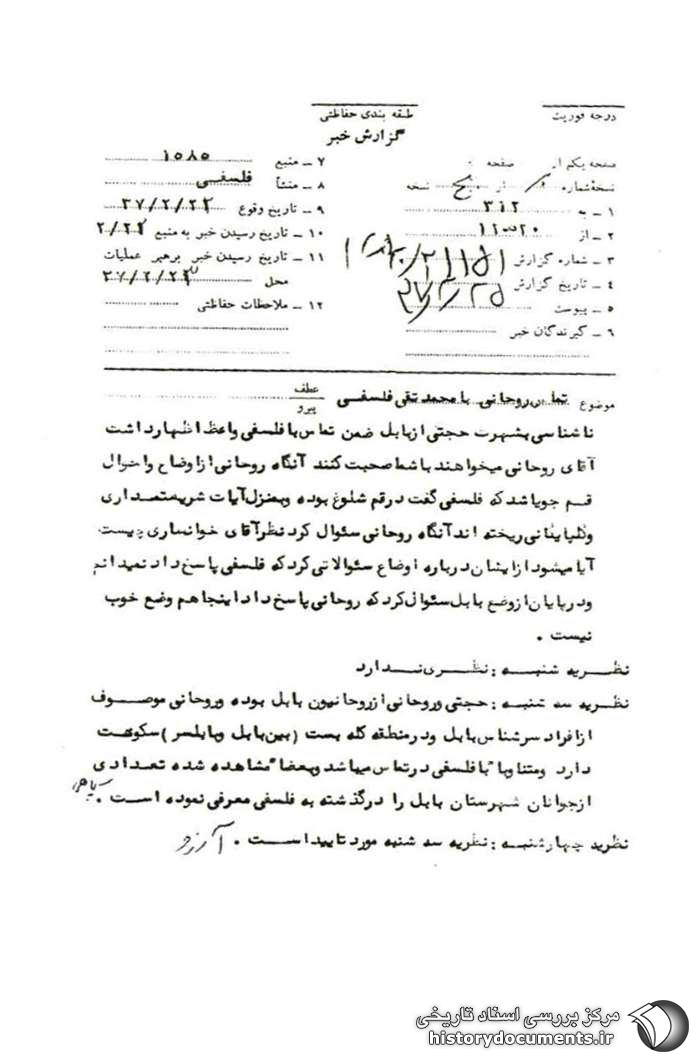 درجه فوریت
طبقه بندی حفاظتی
گزارش خبر
صفحه یکم از صفحه
نسخه شماره از پنج نسخه
۱ – به ۳۱۲
۲ – از
۳ – شماره گزارش
۴ – تاریخ گزارش
۵ – پیوست
۶ – گیرندگان خبر
۷ – منبع ۱۵۸۵
۸ – منشأ فلسفی
۹ – تاریخ وقوع ۳۷/۲/۲۳
۱۰ – تاریخ رسیدن خبر به منبع
۱۱ – تاریخ رسیدن خبر برهبر عملیات
محل ۳۷/۲/۲۳
۱۲ – ملاحظات حفاظتی
موضوع تماس روحانی با محمد تقی فلسفی عطف
پیرو
ناشناسی بشهرت حجتی از بابل ضمن تماس با فلسفی واعظ اظهار داشت
آقای روحانی میخواهند با شما صحبت کنند آنگاه روحانی از اوضاع واحوال
قم جویا شد که فلسفی گفت در قم شلوغ بوده وبمنزل آیات شریعتمداری
وگلپایگانی ریخته اند آنگاه روحانی سئوال کرد نظر آقای خوانساری چیست
آیا میشود از ایشان درباره اوضاع سئوالاتی کرد که فلسفی پاسخ داد نمیدانم
ودر پایان از وضع بابل سئوال کرد که روحانی پاسخ داد اینجا هم وضع خوب
نیست .
نظریه شنبه : نظری ندارد
نظریه سه شنبه : حجتی وروحانی از روحانیون بابل بوده وروحانی موصوف
از افراد سرشناس بابل ودر منطقه گله بست (بین بابل وبابلسر) سکونت
دارد ومتناوباً با فلسفی در تماس میباشد وبعضاً مشاهده شده تعدادی
از جوانان شهرستان بابل را در گذشته به فلسفی معرفی نموده است .
نظریه چهارشنبه : نظریه سه شنبه مورد تایید است . آرزو
مرکز بررسی اسناد تاریخی
historydocuments.ir